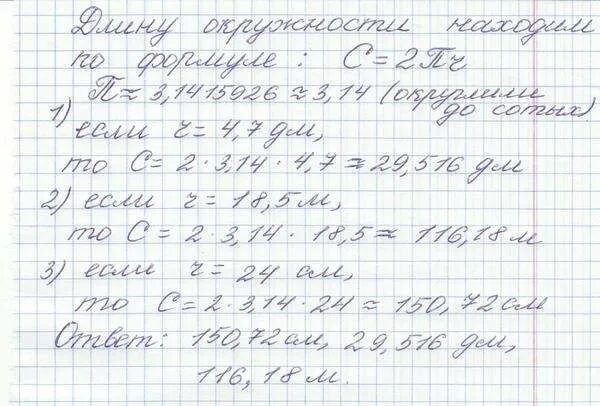 Длину окружности находим
по формуле: C = 2Пr
П ≈ 3,1415926 ≈ 3,14 (округлили до сотых)
1) если r = 4,7 дм,
то C = 2 · 3,14 · 4,7 ≈ 29,516 дм
2) если r = 18,5 м,
то C = 2 · 3,14 · 18,5 ≈ 116,18 м
3) если r = 24 см,
то C = 2 · 3,14 · 24 ≈ 150,72 см
Ответ: 150,72 см, 29,516 дм,
116,18 м.